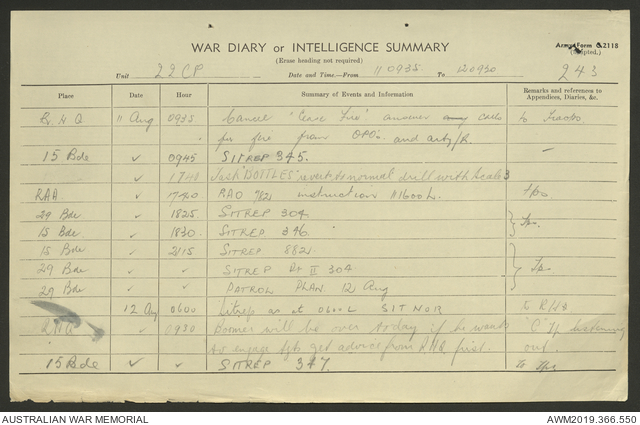 Army Form C2118
(Adapted.)
WAR DIARY or INTELLIGENCE SUMMARY
(Erase heading not required)
Unit 22 CP Date and Time.—From 110935 To 120930 243
Place Date Hour Summary of Events and Information Remarks and reference to Appendices, Diaries, &c.
R H Q 11 Aug 0935 Cancel "Cease Fire" answer calls to
for fire from OPO's and arty/R.
15 Bde ✓ 0945 SITREP 345. —
✓ 1740 Task "BOTTLES" revert to normal drill with
RAA ✓ 1740 RAO instruction 111600L. tps.
29 Bde ✓ 1825 SITREP 304
15 Bde ✓ 1830. SITREP 346 Tps.
15 Bde ✓ 2115 SITREP 8821
29 Bde ✓ ✓ SITREP Pt II 304 Tps
29 Bde ✓ ✓ PATROL PLAN. 12 Aug
12 Aug 0600 Sitrep as at 0600L SIT NO 13 to RHQ
RHQ ✓ 0930 Boomer will be over to day if he wants "C" Tp listening
to engage tgts get advice from RHQ first. out
15 Bde ✓ ✓ SITREP 347. to Tps
AUSTRALIAN WAR MEMORIAL AWM2019.366.550